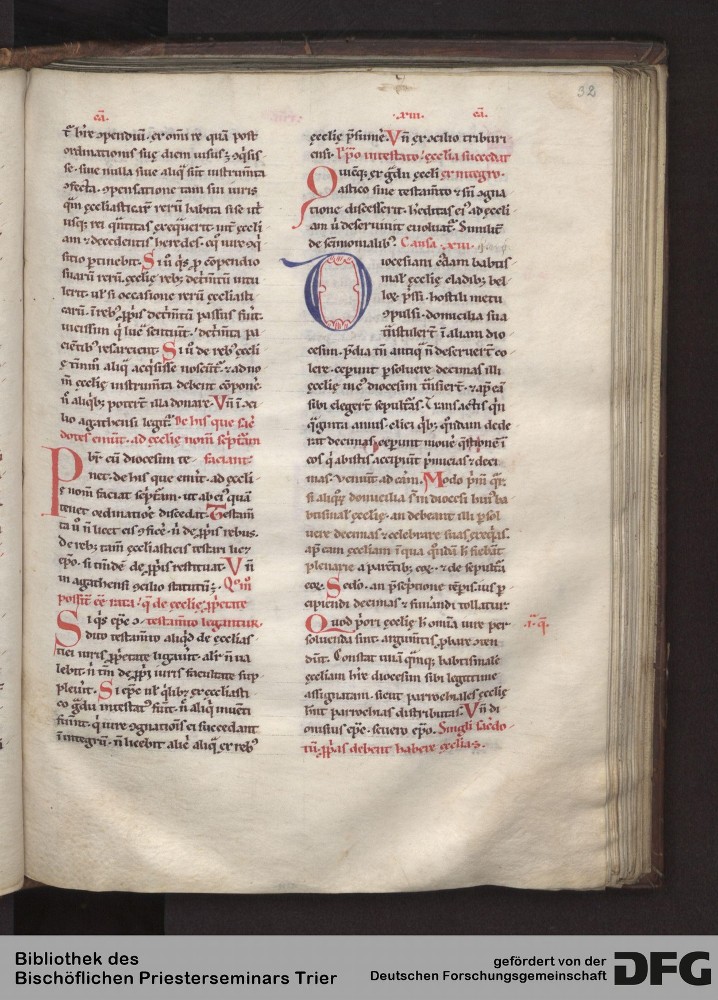 32
cā.
t̄ hr̄e ꝯpendiū. ex om̄i re quā post
ordinationis suę diem uisus ꝫ ꝯq̄sis
se. siue nulla siue aliq̄ sūt instrumta
ꝯfecta. ꝯpensatione tam sui iuris
q̄m ęcclīasticar̄ rerū habita
usq; rei q̄ntitas exequerit ūt ęccli
am ꝫ decedentis heredes. eq̄ iure ꝯq̄
sitio ꝑtinebit. Si ū q̄s ꝓ cōpendio
suarū rerū. ęcclię reb; detm̄tū intu
lerit. ul̄ si occasione rerū ęccliasti
carū. ī reb; ꝓprijs detm̄tū passus fuit.
uicissim q̄ lue sentiunt. detm̄ta pa
cientib; resarcient. Si ū de reb; ęccli
ę t̄nim aliq̄ acq̄sisse noscunt̄. ꝫ ad no
m̄ ęcclię instrum̄ta debent cōpone
ñ aliqb; poterit illa donare. Vn̄ ī ꝯci
lio agathensi legit̄. De his que sac̄
dotes emūt. ad ęcclię nom̄ sc̄ptām
faciant.
Pbr̄ cū diocesim te
net. de his que emit. ad ęccli
ę nom̄ faciat sc̄ptām. ut ab ei quā
tenet ordinatiōe discedat. Testam̄
ta ū n̄ licet eis ꝯficē. n̄ de ꝓprijs rebus.
de reb; tam̄ ęcclīasticis testari licet
ep̄o. si t̄ndē de ꝓprijs restituat. Vn̄
in agathensi ꝯcilio statutū ꝫ. Qm̄
possīt ēē rata. q̄ de ęcclię ꝓpetate
testam̄to legantur.
Si q̄s ep̄c ꝯ
dito testam̄to aliqd de ęcclias
tici iuris ꝓpetate ligauit. alr̄ n̄ ua
lebit. n̄ tm̄ de ꝓpij iuris facultate sup
pleuit. Si ep̄c ul̄ q̄lib; ex ęccliasti
co gdu intestat fūit. n̄ aliq̄ inueni
fuint. q̄ iure ꝯgnatiōis ei succedant
ī integrū. n̄ licebit alic̄ aliq̄ ex reb;
.xiii. cā.
ęcclię p̄sumē. Vn̄ ex ꝯcilio triburi
ensi. Ep̄o intestato ęcclīa succedat
ex integro.
Quicq; ex gdu ęccli
astico sine testam̄to ꝫ sin̄ ꝯgna
tione discesserit. hēditas ei ad ęccli
am ū deseruiuit euoluat̄. Similit̄
de sc̄imonialib;. Causa .xiii.
Diocesiani cdam babtis
mal̄ ęcclię cladib; bel
lor p̄ssi. hostili metu
ꝯpulsi. domicilia sua
t̄nstulert̄ ī aliam dio
cesim. p̄dia tn̄ antiq̄ n̄ deseruert̄ co
lere. ceper̄ ꝑsoluere decimas illi
ęcclię in ē diocesim t̄nsiert̄. ꝫ ap̄ cā
sibi elegert̄ sepultās. Transactis q̄n
q̄ginta annis. clici q̄b; quidam dede
rāt decimas. cepunt mouē q̄stionē ī
eos q̄ ab istis accipiūt p̄micias ꝫ deci
mas. Venitut ad cām. Modo p̄m qr̄.
si aliq; domicilia s̄ in diocesi hui ba
btismal̄ ęcclię. an debeant illi ꝑsol
uere decimas ꝫ celebrare suas exeq̄as.
ap̄ eam ęccliam ī qua q̄dā h̄ fiebāt
plenarie a parētib; eor. ꝫ de sepulta
eor. Scdo. an p̄sc̄ptione tēpis ius ꝑ
cipiendi decimas ꝫ funandi tollatur
Quod p̄ori ęcclię h̄ omīa iure per
soluenda sint. argumtis ꝓbare cten
dūt. Constat unā q̄mq; babtismalē
ęccliam hr̄e diocesim sibi legitime
assignatam. sicut parrochiales ęcclię
hn̄t parrochias distributas. Vn̄ di
onisius ep̄c. seuero ep̄o. Singli sacdo
tū ꝓprias debent habere ęcclīas.
.i.ª q̄.
Bibliothek des
Bischöflichen Priesterseminars Trier
gefördert von der
Deutschen Forschungsgemeinschaft
DFG